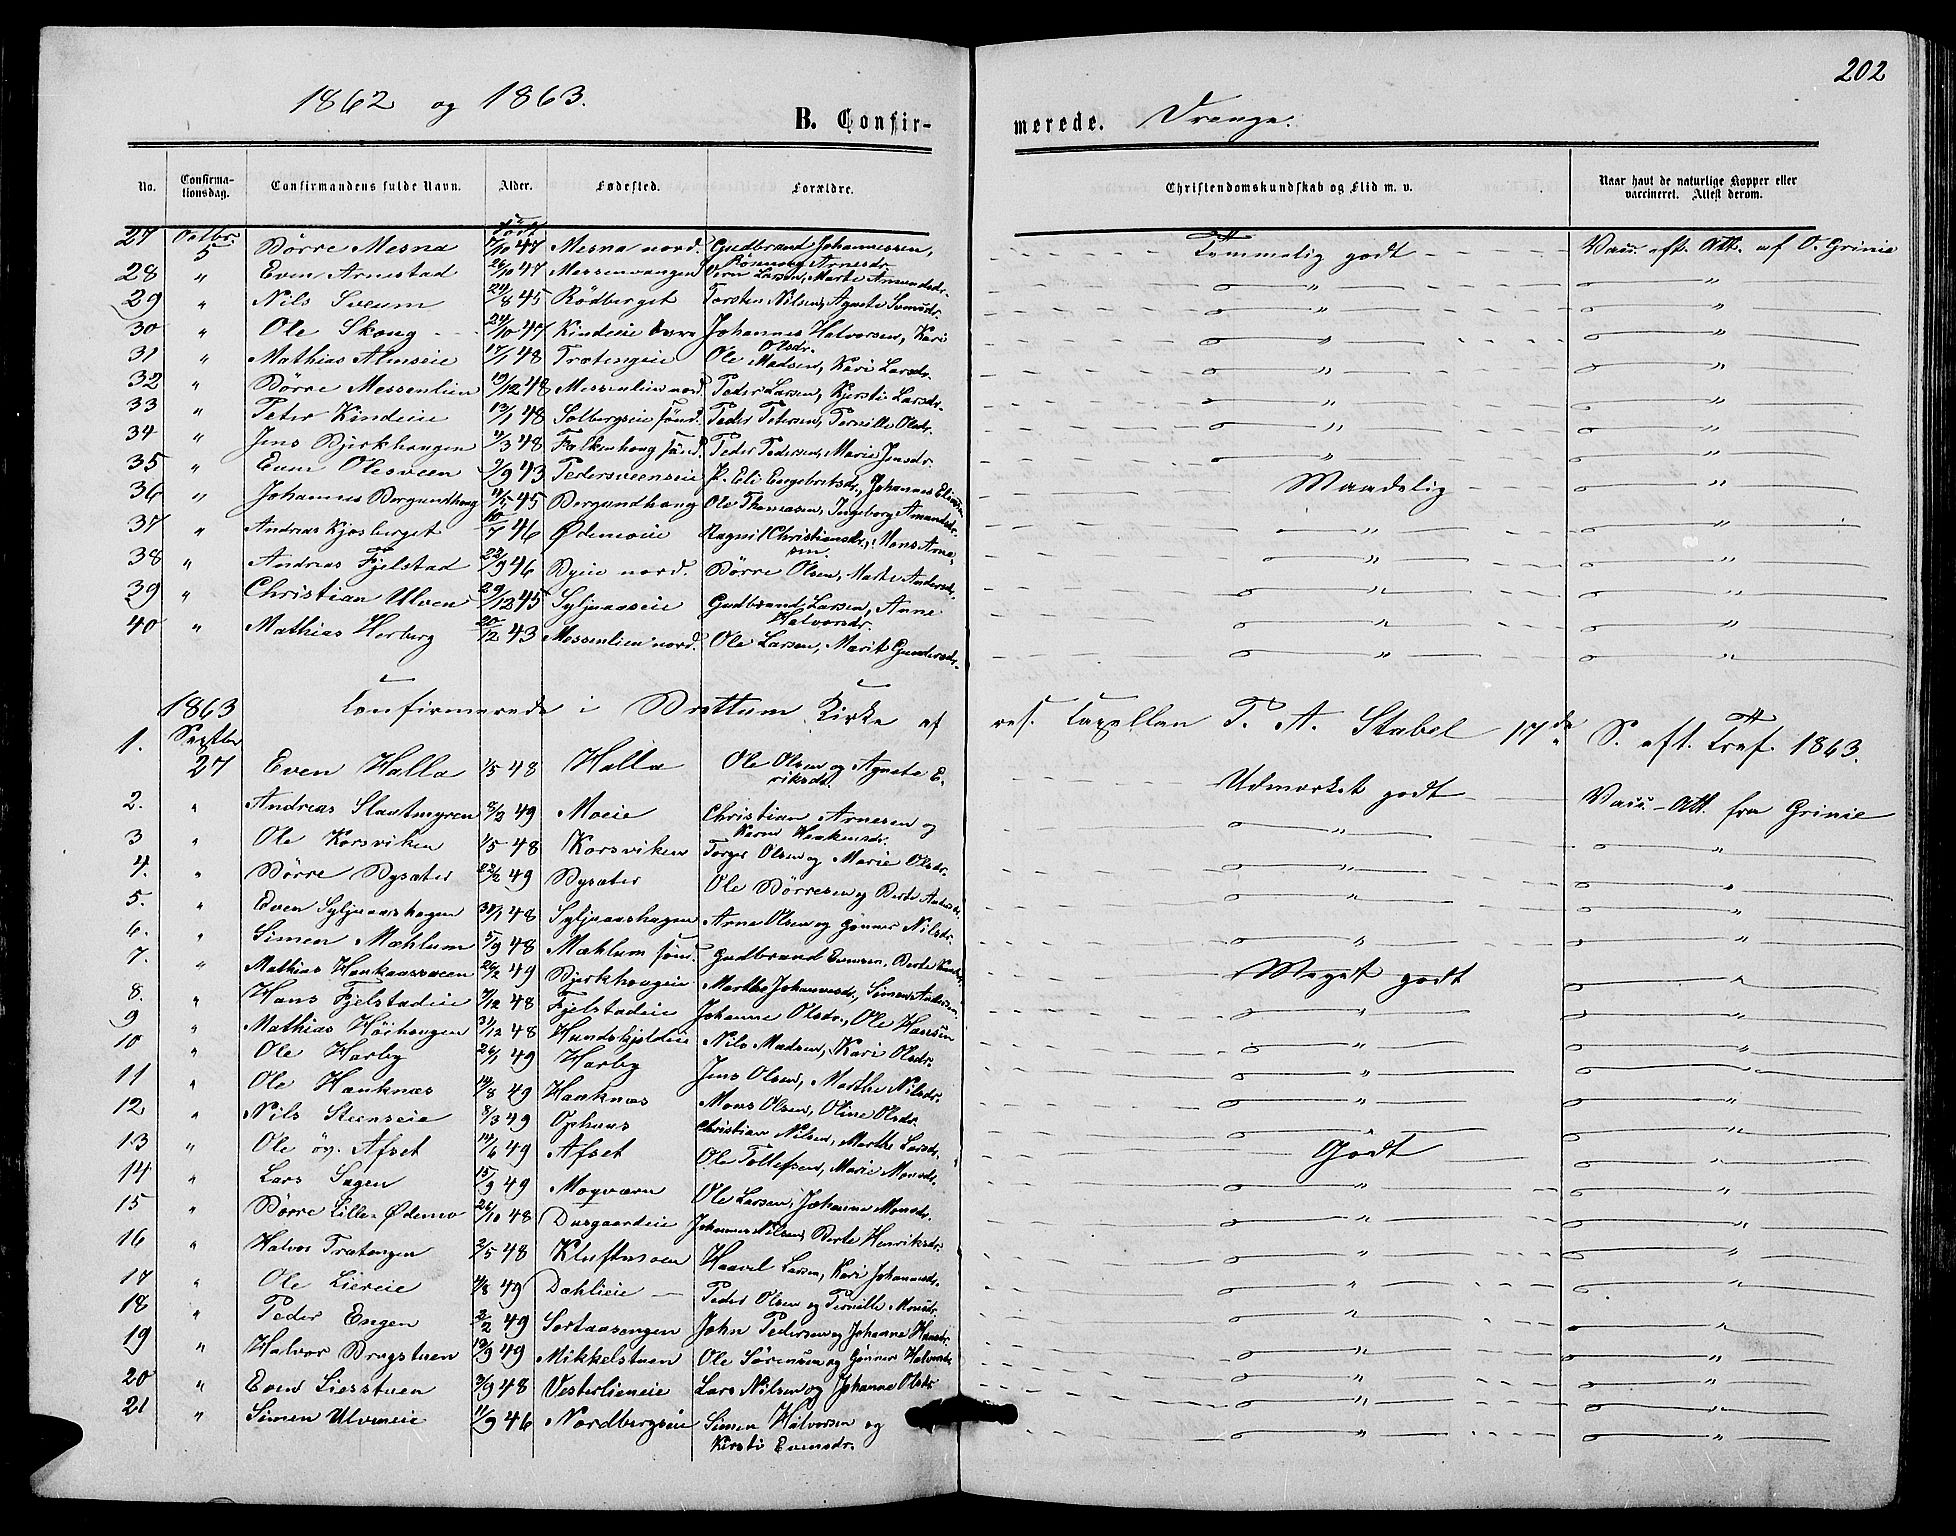 202
1862 og 1863.
B. Confirmerede. Drenge.
No. Confirmationsdag. Confirmandens fulde Navn. Alder. Fødested. Forældre. Christendomskundskab og Flid m. v. Naar havt de naturlige Kopper eller vaccineret. Attest derom.
27 Octbr. 5 Børre Mesna Født 7/10 47 Mesna nord. Gudbrand Johannessen, Arnesdr. Temmelig godt Vacc. eft. Att. af O. Grinie
28 " Even Arnestad 26/10 47 Messenvangen Larsen, Marte Amundsdr. " "
29 " Nils Sveum 24/8 45 Rödberget Torsten Nilsen, Agnete " "
30 " Ole Skoug 24/10 47 Kindeie Johannes Halvorsen, Kari Olsdr. " "
31 " Mathias Almseie 17/1 48 Trætengeie Ole Madsen, Kari Larsdr. " "
32 " Børre Messenlien 19/12 48 Messenlien nord. Peder Larsen, Kjersti Larsdr. " "
33 " Peter Kindeie 13/1 48 Solbergseie sönd. Peder Petersen, Pernille Olsdr. " "
34 " Jens Bjerkhougen 11/3 48 Falkenhoug sönd. Peder Pedersen, Marie Jensdr. " "
35 " Even Olesveen 9/9 43 Pedersveenseie P. Eli Engebretsdr, Johannes Maadelig "
36 " Johannes Bergundhoug 11/5 45 Bergundhoug Ole Thomassen, Ingeborg Amundsdr. " "
37 " Andreas Kjosberget 10/7 46 Ødemoeie Ragnil Christiansdr, Mons Arnesen. " "
38 " Andreas Fjelstad 22/9 46 Byeie nord. Børre Olsen, Marte Andersdr. " "
39 " Christian Ulven 29/12 45 Syljuaaseie Gudbrand Larsen, Anne Halvorsdr. " "
40 " Mathias Herberg 20/12 43 Messenlien nord. Ole Larsen, Marit Gundersdr. " "
1863 Confirmerede i Brøttum Kirke af res. Capellan P. A. Stabel 17de S. eft. Tref. 1863.
1. Septbr 27 Even Halla 1/5 48 Halla Ole Olsen og Agnete Eriksdr. Udmærket godt Vacc. Att. fra Grinie
2. " Andreas Slaatmyren 8/2 49 Moeie Christian Arnesen og Karen Haakensdr. " "
3 " Ole Korsviken 1/5 48 Korsviken Torger Olsen og Marie Olsdr. " "
4. " Børre Bysæter 22/2 49 Bysæter Ole Børresen og Berte " "
5. " Even Syljuaashagen 48 Syljuaashagen Arne Olsen og Gønner Nilsdr. " "
6. " Simen Mæhlum 5/9 48 Mæhlum sönd. Gudbrand Evensen, Berte Meget godt "
7. " Mathias Haukaassveen 26/2 49 Bjerkhougeie Marthe Johannesdr, Simen Andersen " "
8. " Hans Fjelstadeie 7/12 48 Fjelstadeie Johanne Olsdr., Ole Hansen " "
9 " Mathias Höihougen 31/12 48 Hundskjoldeie Nils Madsen, Kari Olsdr. " "
10 " Ole Harby 26/1 49 Harby Jens Olsen, Marthe Nilsdr. " "
11 " Ole Hanknæs 14/8 49 Hanknæs Mons Olsen, Oline Olsdr. " "
12 " Nils Steenseie 8/3 49 Ophuus Christian Nilsen, Marthe Larsdr. Godt "
13 " Ole öv. Afset 14/6 49 Afset Ole Tollefsen, Marie Monsdr. " "
14 " Lars Sagen 15/9 49 Mogværn Ole Larsen, Johanne Monsdr. " "
15 " Børre Lille-Ødemo 26/10 48 Dusgaardeie Johannes Nilsen, Berte Henriksdr. " "
16 " Halvor Trætengen 2/5 48 Kluftmoen Haavel Larsen, Kari Johannesdr. " "
17 " Ole Liereie 4/8 49 Dæhlieie Peder Olsen og Pernille Monsdr. " "
18 " Peder Engen 2/2 49 Sortaasengen John Pedersen og Johanne Hansdr. " "
19 " Halvor Brugstuen 19/9 49 Mikkelstuen Ole Sørensen og Gønner Halvorsdr. " "
20 " Even Liesstuen 3/9 48 Vesterlieneie Lars Nilsen og Johanne Olsdr. " "
21 " Simen Ulveneie 11/9 46 Nordbergseie Simen Halvorsen og Kirsti Evensdr. " "